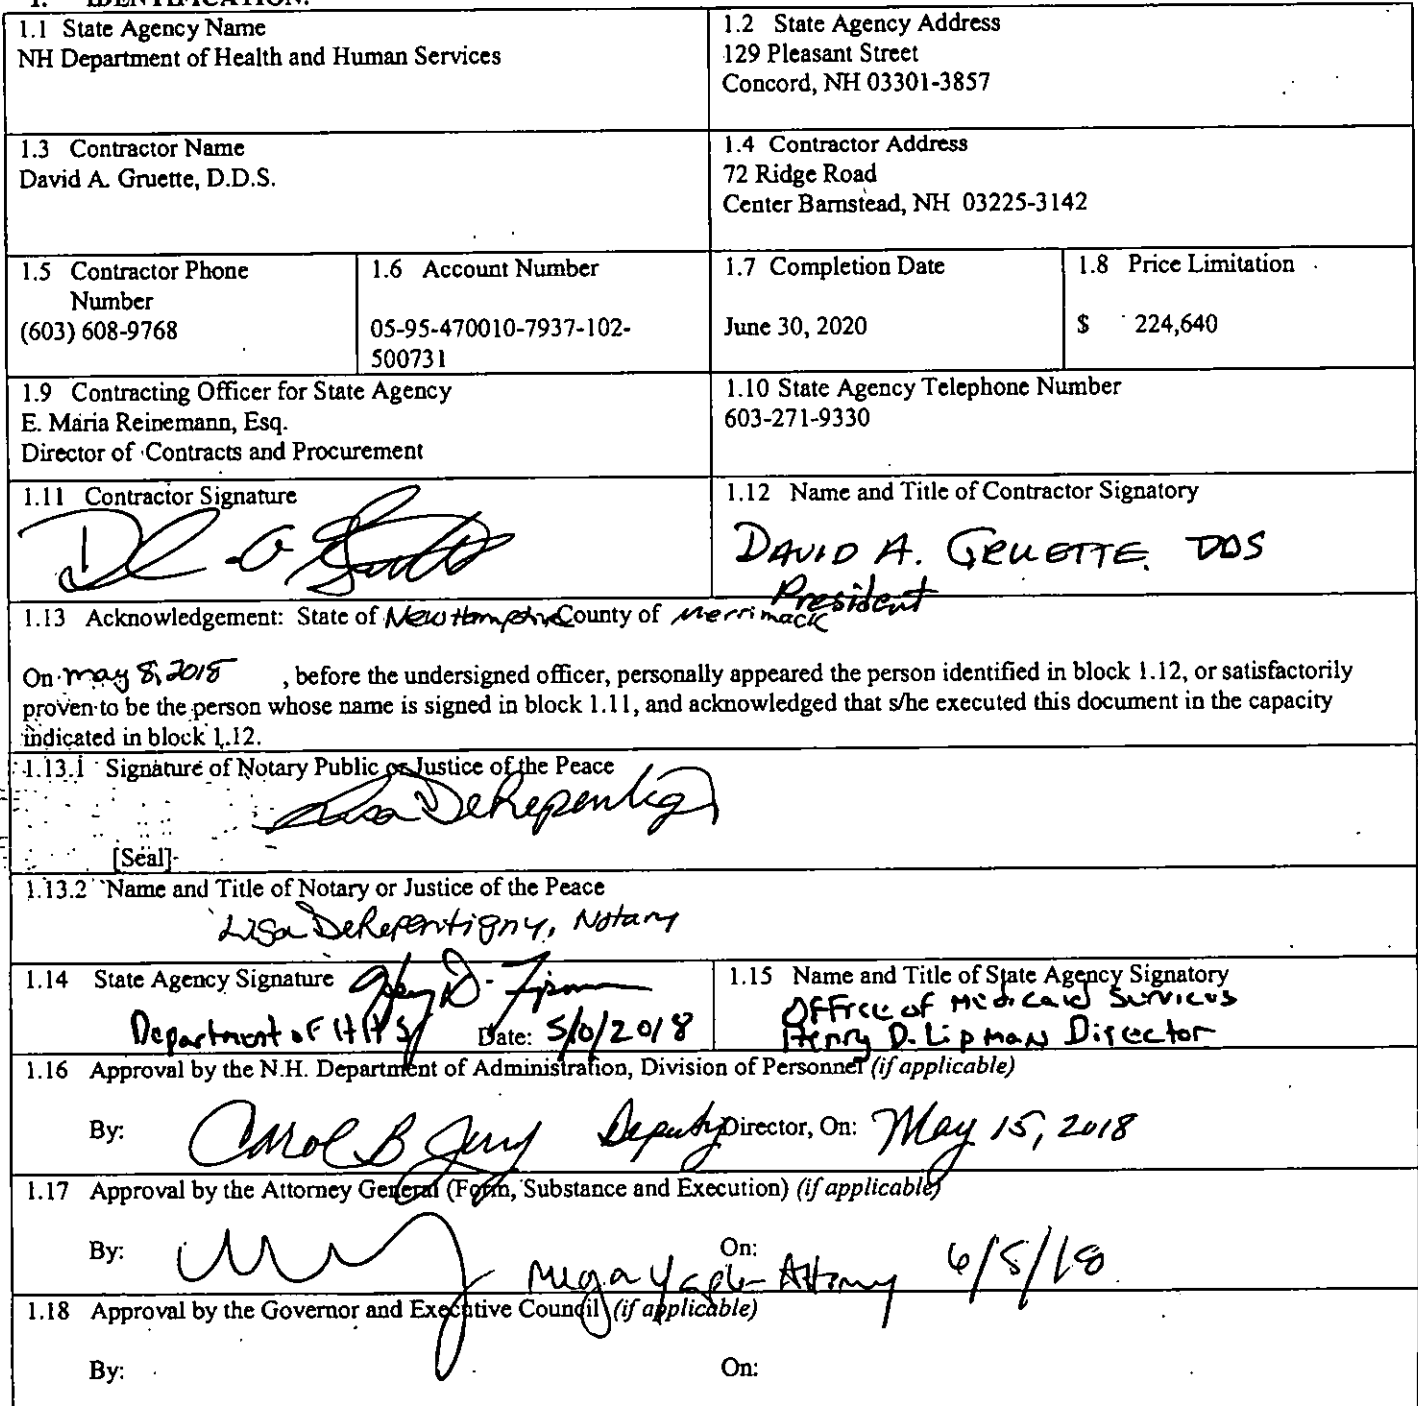 1. IDENTIFICATION.
1.1 State Agency Name
NH Department of Health and Human Services
1.2 State Agency Address
129 Pleasant Street
Concord, NH 03301-3857
1.3 Contractor Name
David A. Gruette, D.D.S.
1.4 Contractor Address
72 Ridge Road
Center Barnstead, NH 03225-3142
1.5 Contractor Phone
Number
(603) 608-9768
1.6 Account Number
05-95-470010-7937-102-
500731
1.7 Completion Date
June 30, 2020
1.8 Price Limitation
$ 224,640
1.9 Contracting Officer for State Agency
E. Maria Reinemann, Esq.
Director of Contracts and Procurement
1.10 State Agency Telephone Number
603-271-9330
1.11 Contractor Signature
1.12 Name and Title of Contractor Signatory
DAVID A. GRUETTE, DDS
President
1.13 Acknowledgement: State of New Hampshire County of Merrimack
On May 8, 2018 , before the undersigned officer, personally appeared the person identified in block 1.12, or satisfactorily
proven to be the person whose name is signed in block 1.11, and acknowledged that s/he executed this document in the capacity
indicated in block 1.12.
1.13.1 Signature of Notary Public or Justice of the Peace
Lisa DeRepentigny
[Seal]
1.13.2 Name and Title of Notary or Justice of the Peace
Lisa DeRepentigny, Notary
1.14 State Agency Signature
Department of HHS Date: 5/0/2018
1.15 Name and Title of State Agency Signatory
Office of Medicaid Services
Henry D. Lipman Director
1.16 Approval by the N.H. Department of Administration, Division of Personnel (if applicable)
By: Carol B Deputy Director, On: May 15, 2018
1.17 Approval by the Attorney General (Form, Substance and Execution) (if applicable)
By: On:
Attorney 6/5/18
1.18 Approval by the Governor and Executive Council (if applicable)
By: On: